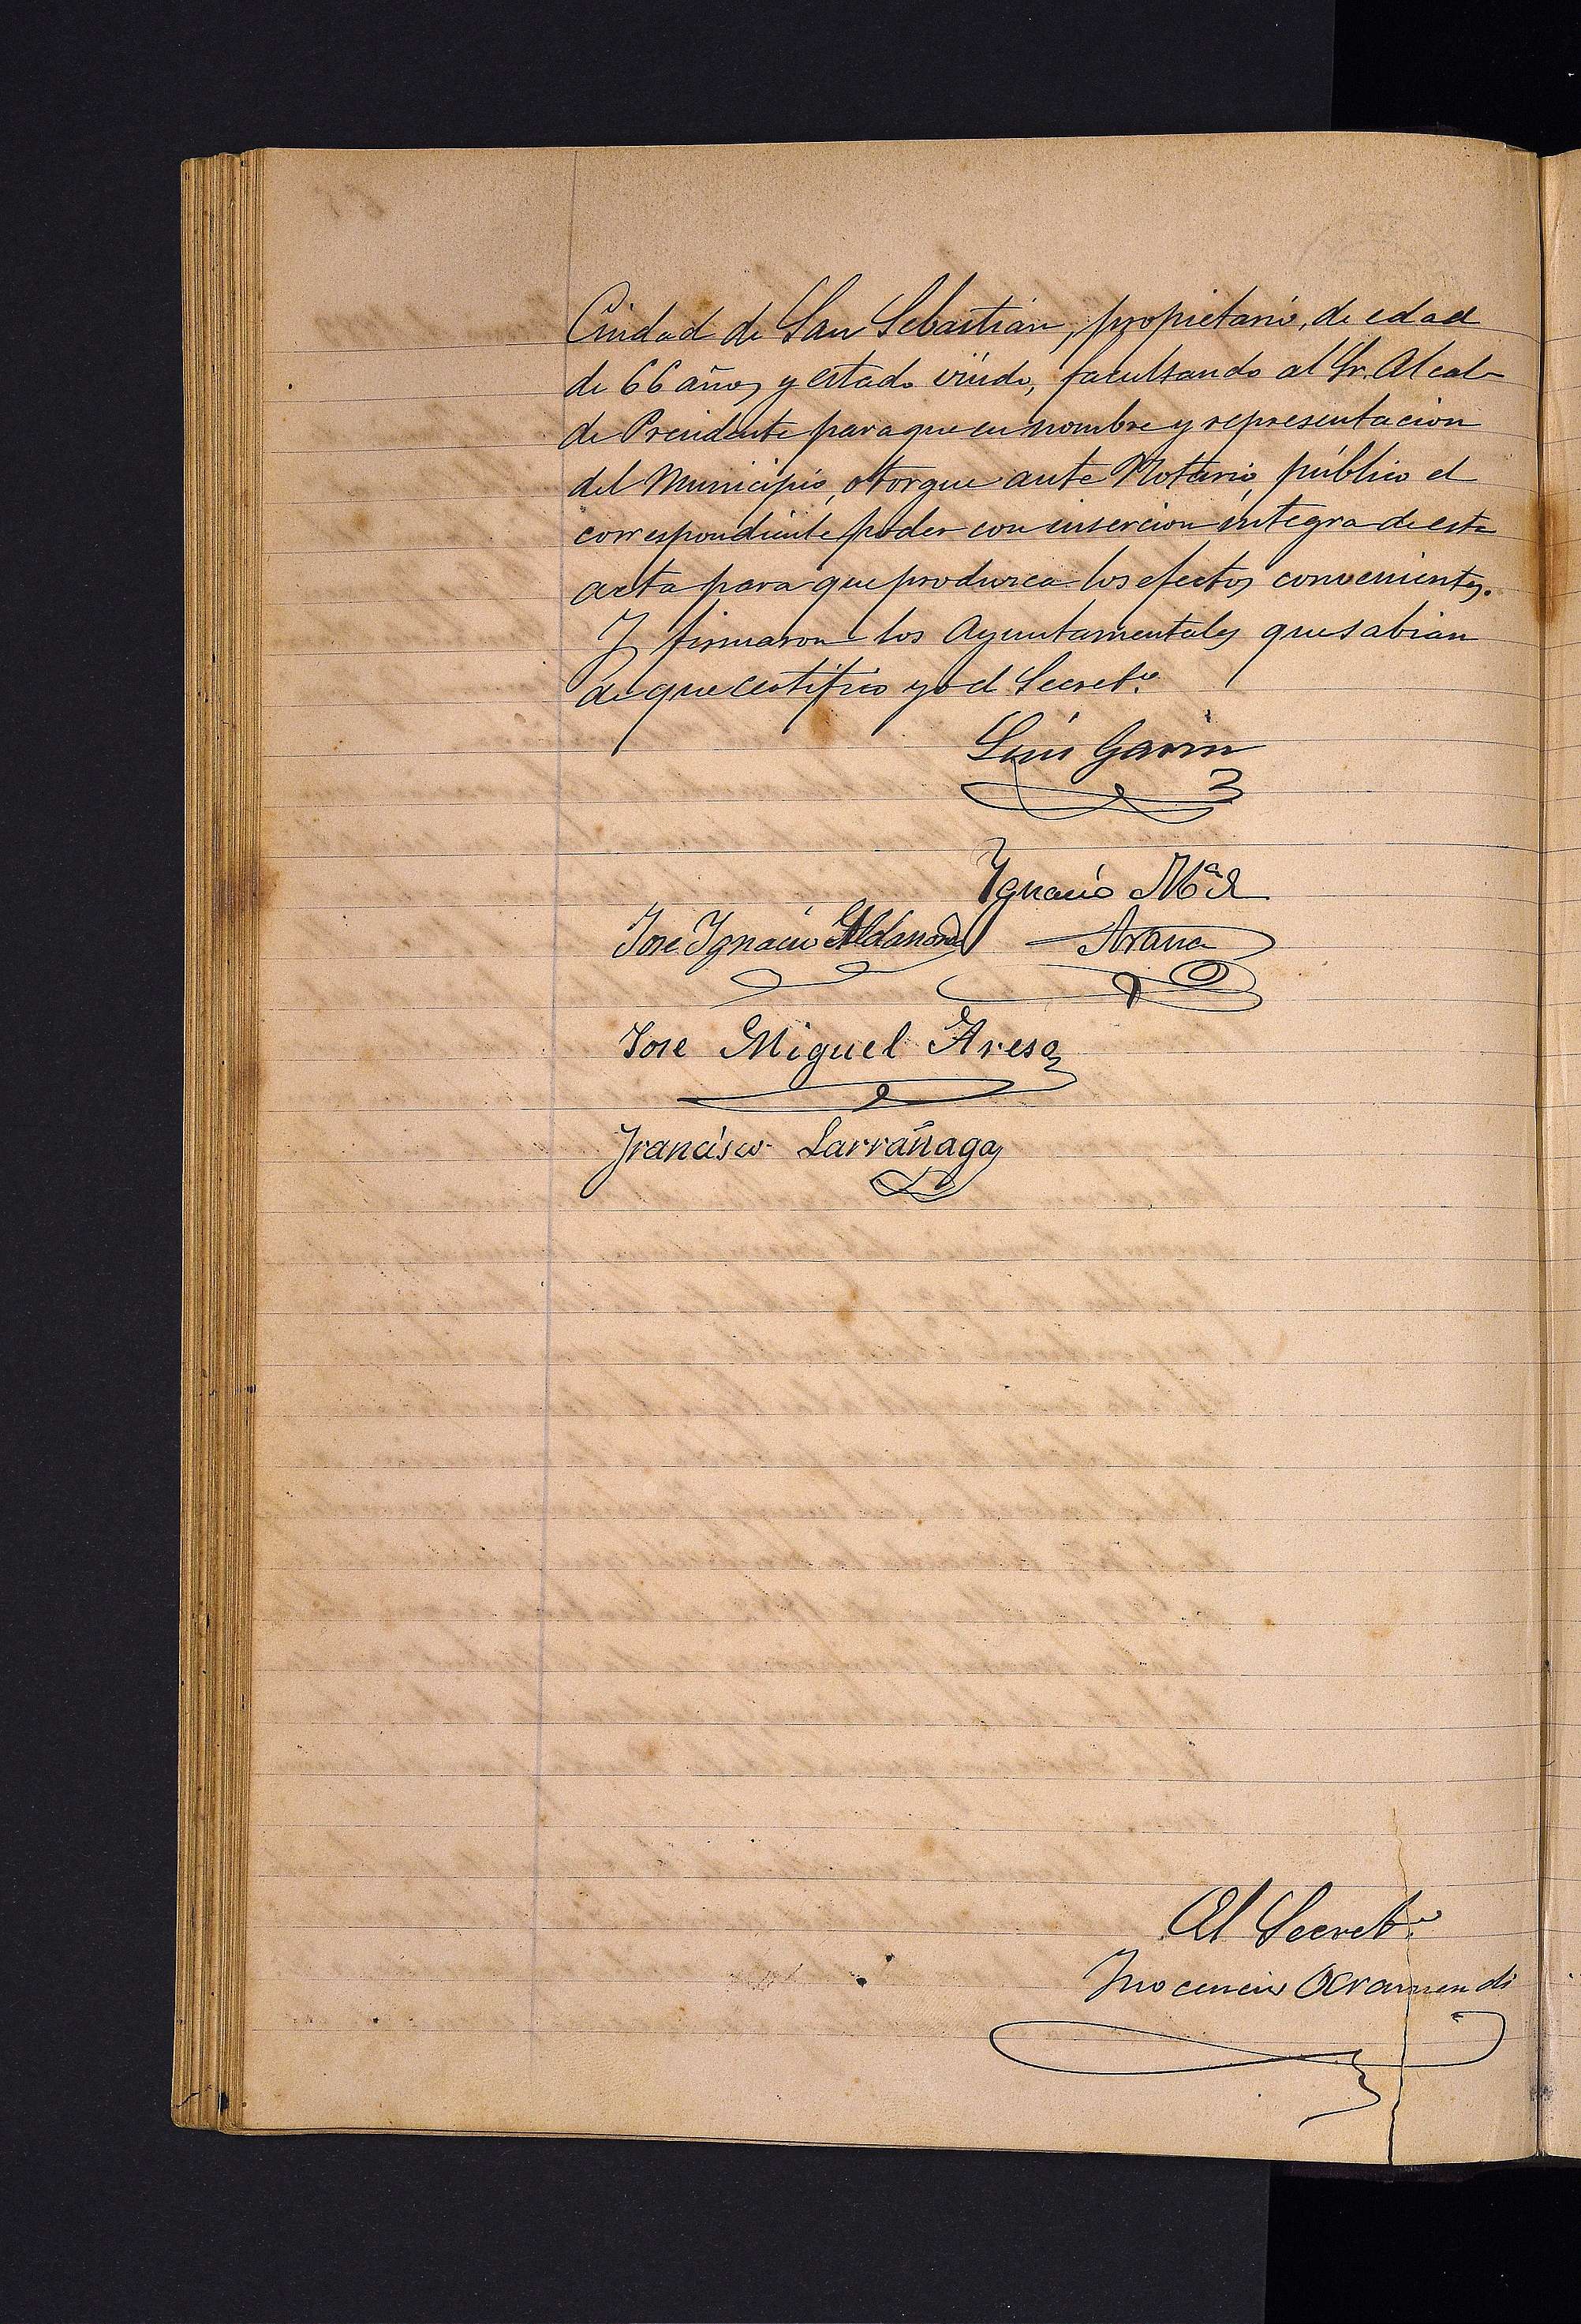 Ciudad de San Sebastián, propietario, de edad
de 66 años y estado viúdo, facultando al Sr. Alcal-
de Presidente para que en nombre y representacion
del Municipio, otorgue ante Notario público el
correspondiente poder con insercion íntegra de esta
acta para que produzca los efectos convenientes.
Y firmaron los Ayuntamentales que sabian
de que certifico yo el Secret.º
Luis Garin
Ygnacio M.ª de
Jose Ygnacio Aldanondo Arana
Jose Miguel Areso
Francisco Larrañaga
El Secret.º
Inocencio Ocramendi